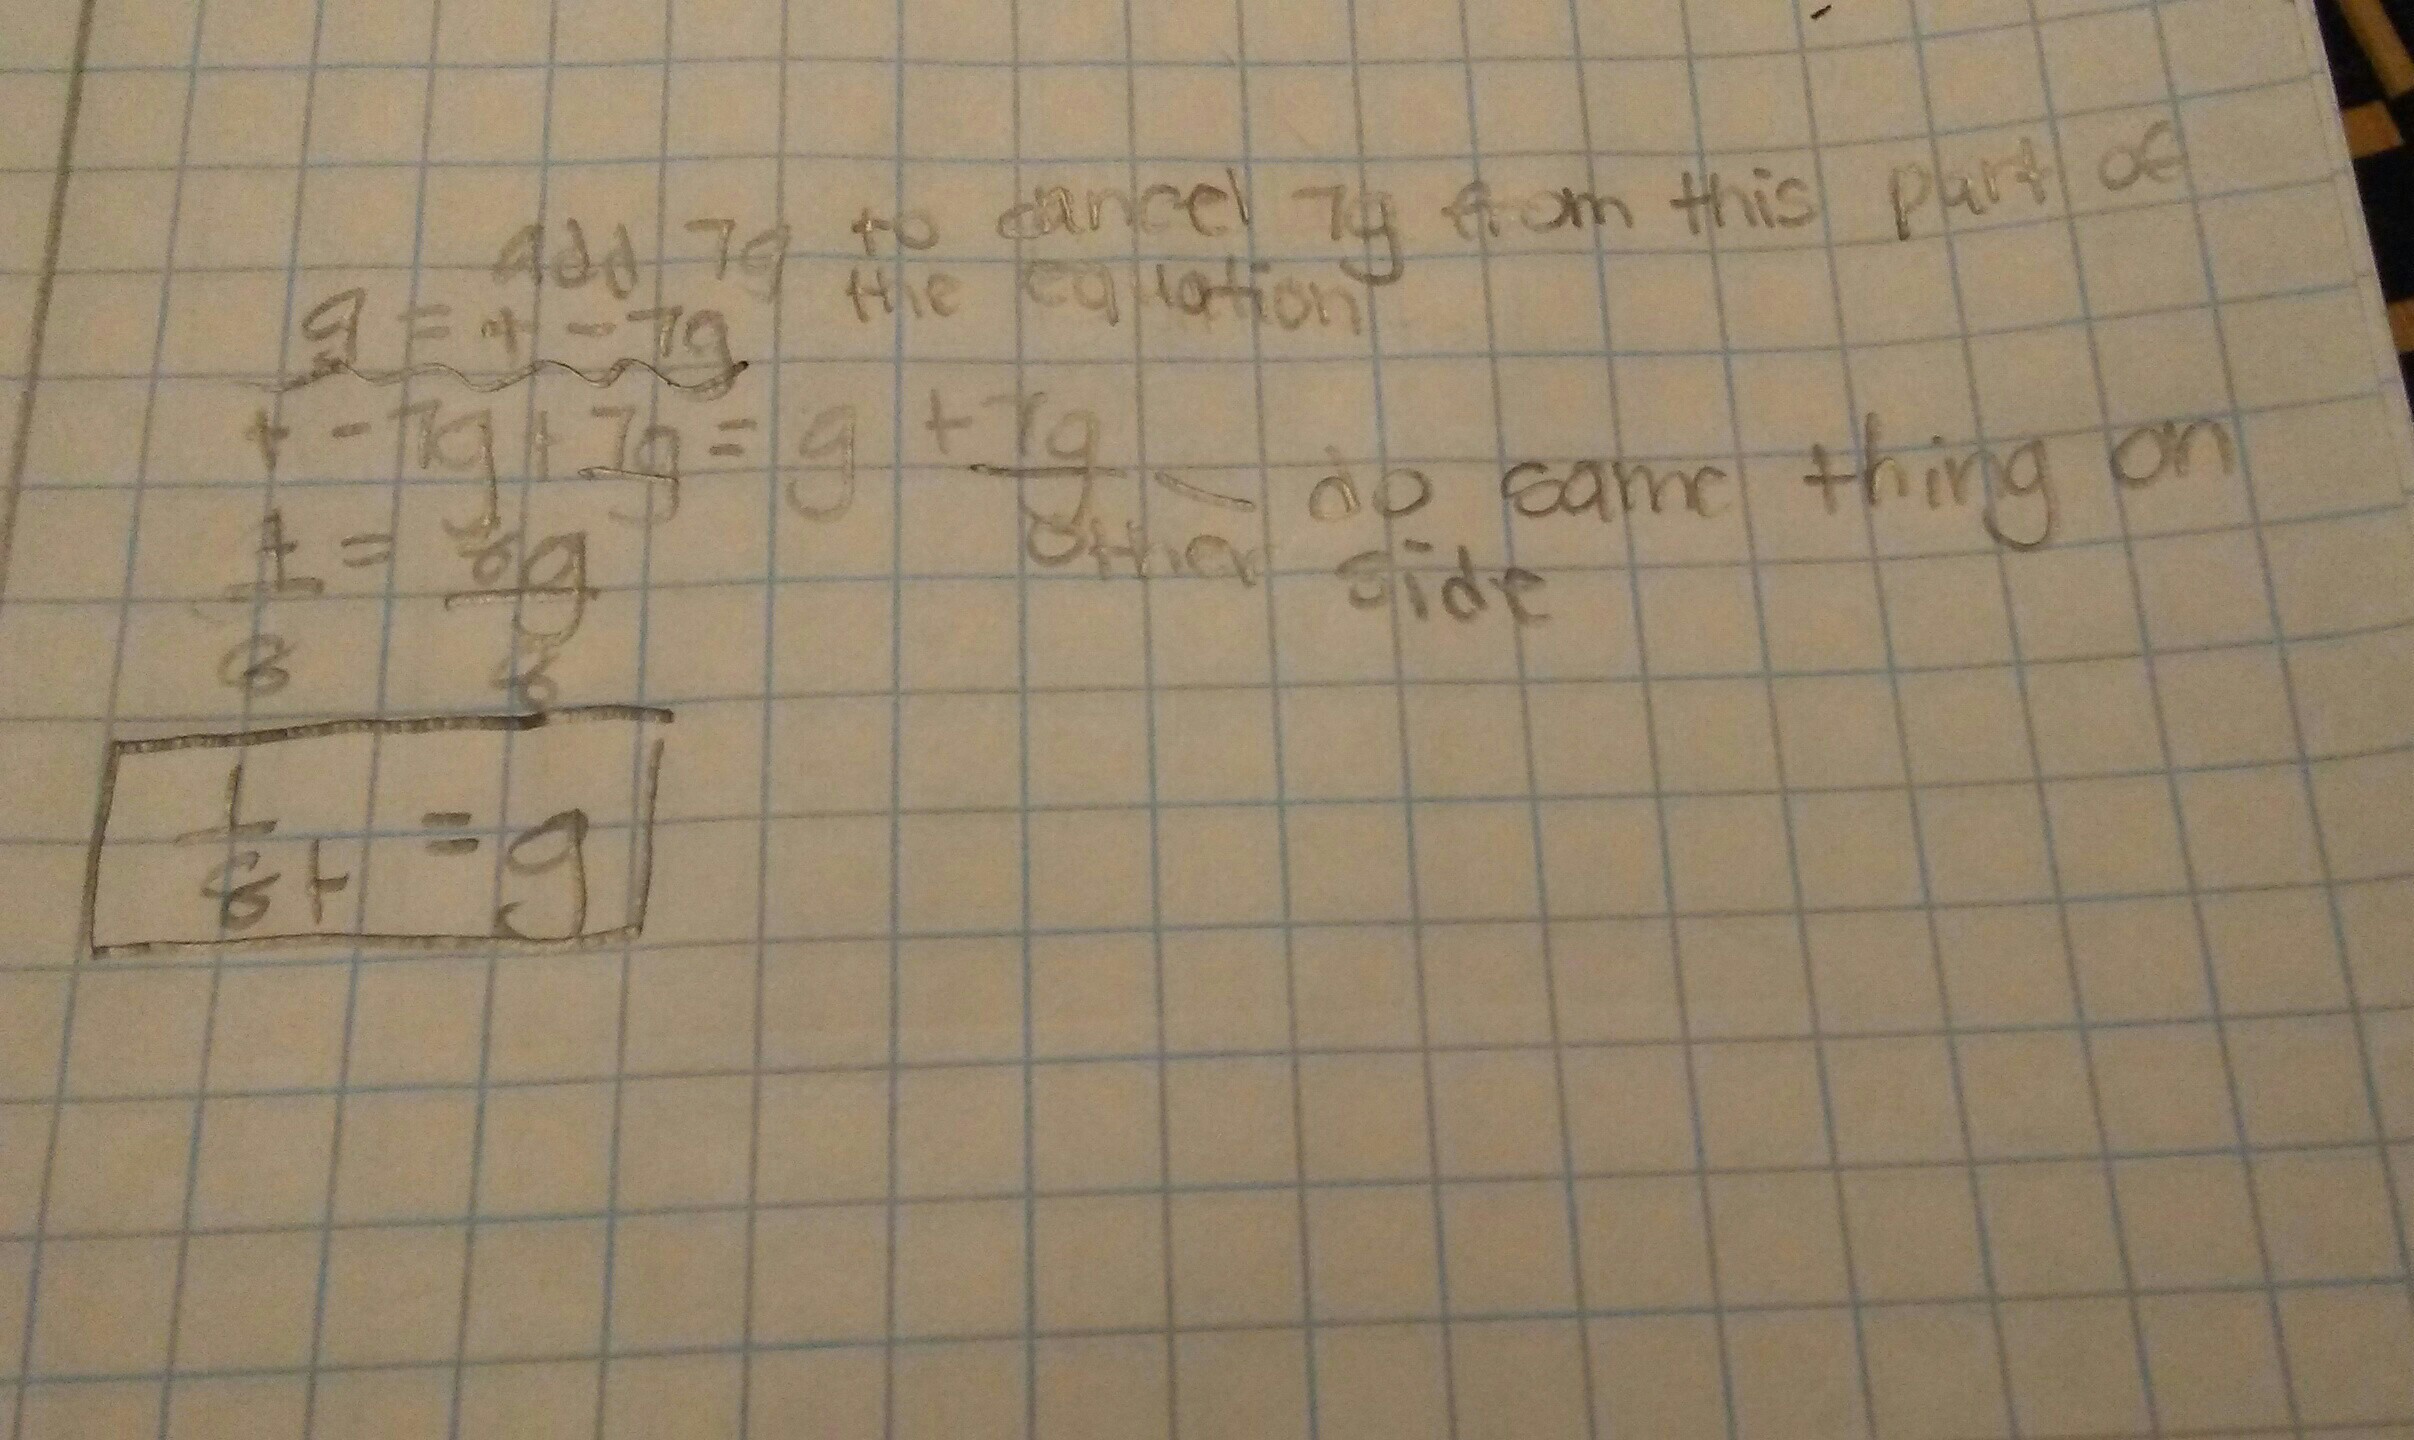 add 7g to cancel 7g from this part of
the equation
g = t - 7g
t - 7g + 7g = g + 7g - do same thing on
other side
t = 8g
8 8
1
8t = g